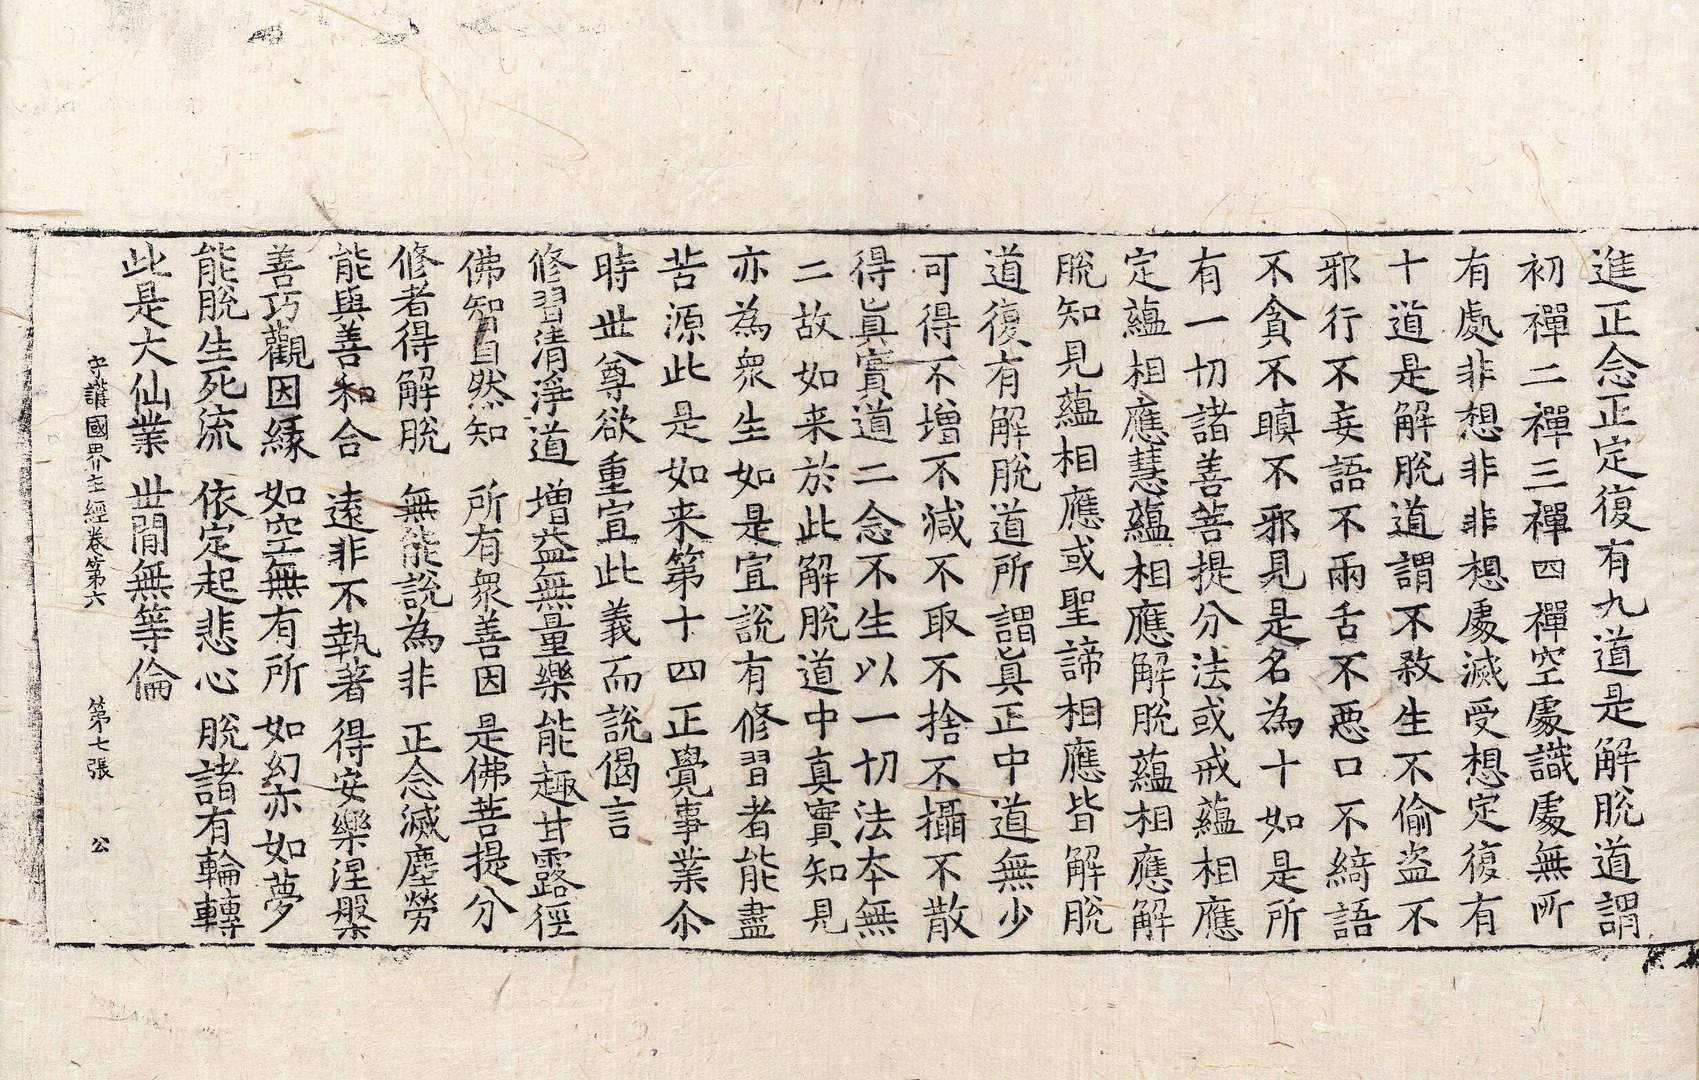 進正念正定復有九道是解脫道謂
初禪二禪三禪四禪空處識處無所
有處非想非非想處滅受想定復有
十道是解脫道謂不敎生不偷盗不
邪行不妄語不兩舌不惡口不綺語
不貪不瞋不邪見是名為十如是所
有一切諸善菩提分法或戒蘊相應
定蘊相應慧蘊相應解脫蘊相應解
脫知見蘊相應或聖諦相應皆解脫
道復有解脫道所謂眞正中道無少
可得不增不減不取不捨不攝不散
得眞實道二念不生以一切法本無
二故如来於此解脫道中真實知見
亦為衆生如是宣說有修習者能盡
苦源此是如来第十四正覺事業尒
時世尊欲重宣此義而說偈言
修習清淨道　增益無量樂　能趣甘露徑
佛智自然知　所有衆善因　是佛菩提分
修者得解脫　無能說為非　正念滅塵勞
能與善和合　遠非不執著　得安樂涅槃
善巧觀因緣　如空無有所　如幻亦如夢
能脫生死流　依定起悲心　脫諸有輪轉
此是大仙業　世間無等倫
守護國界主經卷第六　第七張　公